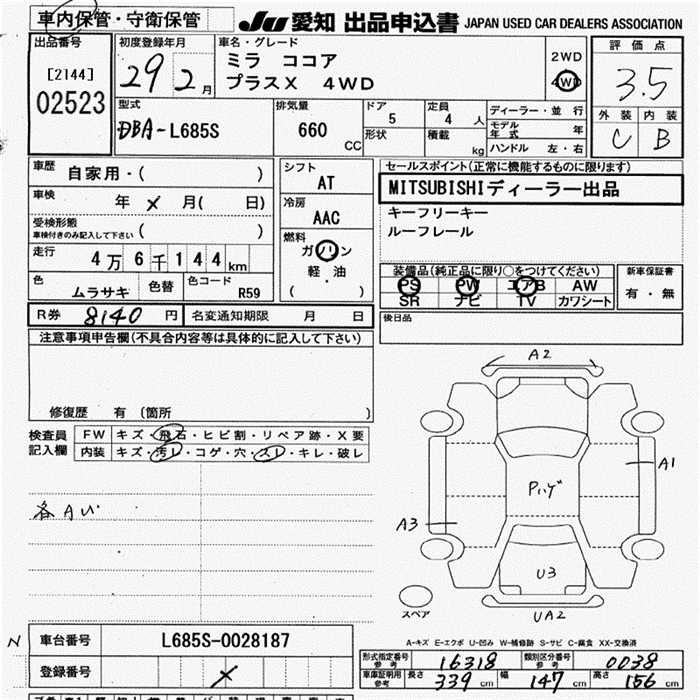 車内保管・守衛保管
JU 愛知 出品申込書 JAPAN USED CAR DEALERS ASSOCIATION
出品番号
[2144]
02523
初度登録年月
29 2 月
車名・グレード
ミラ ココア
プラスX 4WD
2WD
4WD
評価点
3.5
外装 内装
C B
型式
DBA-L685S
排気量
660
CC
ドア
5
形状
定員
4 人
積載
kg
ディーラー・並行
モデル年式 年
ハンドル 左・右
車歴
自家用・( )
車検
年 × 月( 日)
受検形態
車検付きのみ記入して下さい ( )
走行
4万6千144km
色
ムラサキ
色替
色コード
R59
シフト
AT
冷房
AAC
燃料
ガソリン
軽・油
( )
セールスポイント(正常に機能するものに限ります)
MITSUBISHIディーラー出品
キーフリーキー
ルーフレール
装備品(純正品に限り○をつけてください)
PS PW エアB AW
SR ナビ TV カワシート
新車保証書
有・無
R券 8140 円
名変通知期限 月 日
後日品
注意事項申告欄(不具合内容等は具体的に記入して下さい)
修復歴 有 (箇所 )
検査員
記入欄
FW キズ・飛石・ヒビ割・リペア跡・X要
内装 キズ・汚レ・コゲ・穴・スレ・キレ・破レ
各Aい
A2
A1
Pハゲ
A3
U3
UA2
スペア
A-キズ E-エクボ U-凹み W-補修跡 S-サビ C-腐食 XX-交換済
N
車台番号 L685S-0028187
登録番号
形式指定番号
参考
16318
類別区分番号
参考
0038
車庫証明用
参考
長さ 339 cm 幅 147 cm 高さ 156 cm